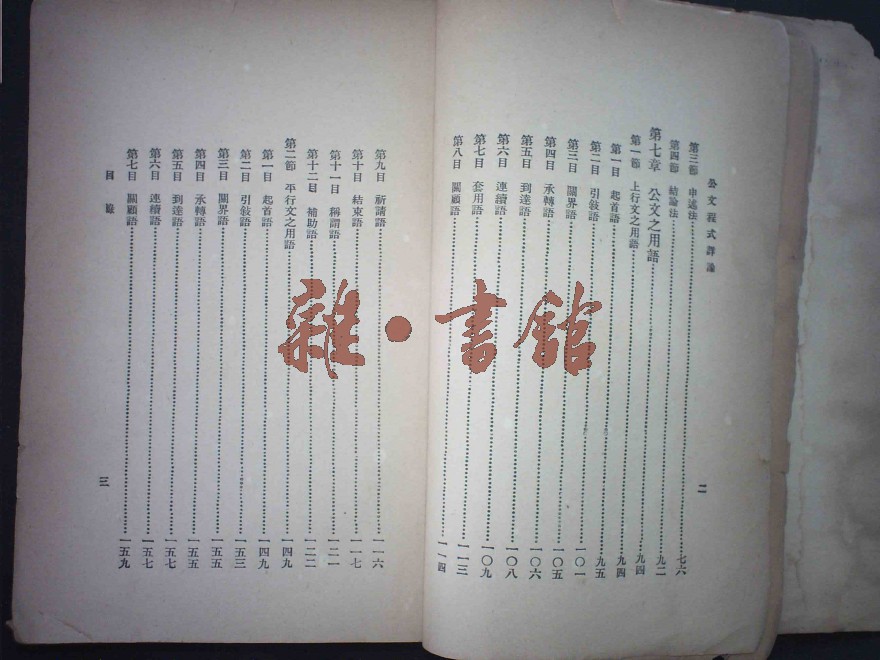 公文程式詳論
二
第三節 申述法……七六
第四節 結論法……九二
第七章 公文之用語……九四
第一節 上行文之用語……九四
第一目 起首語……九五
第二目 引敍語……一〇一
第三目 關界語……一〇五
第四目 承轉語……一〇六
第五目 到達語……一〇八
第六目 連續語……一〇九
第七目 套用語……一一三
第八目 關顧語……一一四
第九目 祈請語……一一六
第十目 結束語……一一七
第十一目 稱謂語……一二一
第十二目 補助語……一二二
第二節 平行文之用語……一四九
第一目 起首語……一四九
第二目 引敍語……一五三
第三目 關界語……一五五
第四目 承轉語……一五五
第五目 到達語……一五七
第六目 連續語……一五七
第七目 關顧語……一五九
目錄
三
雜·書館